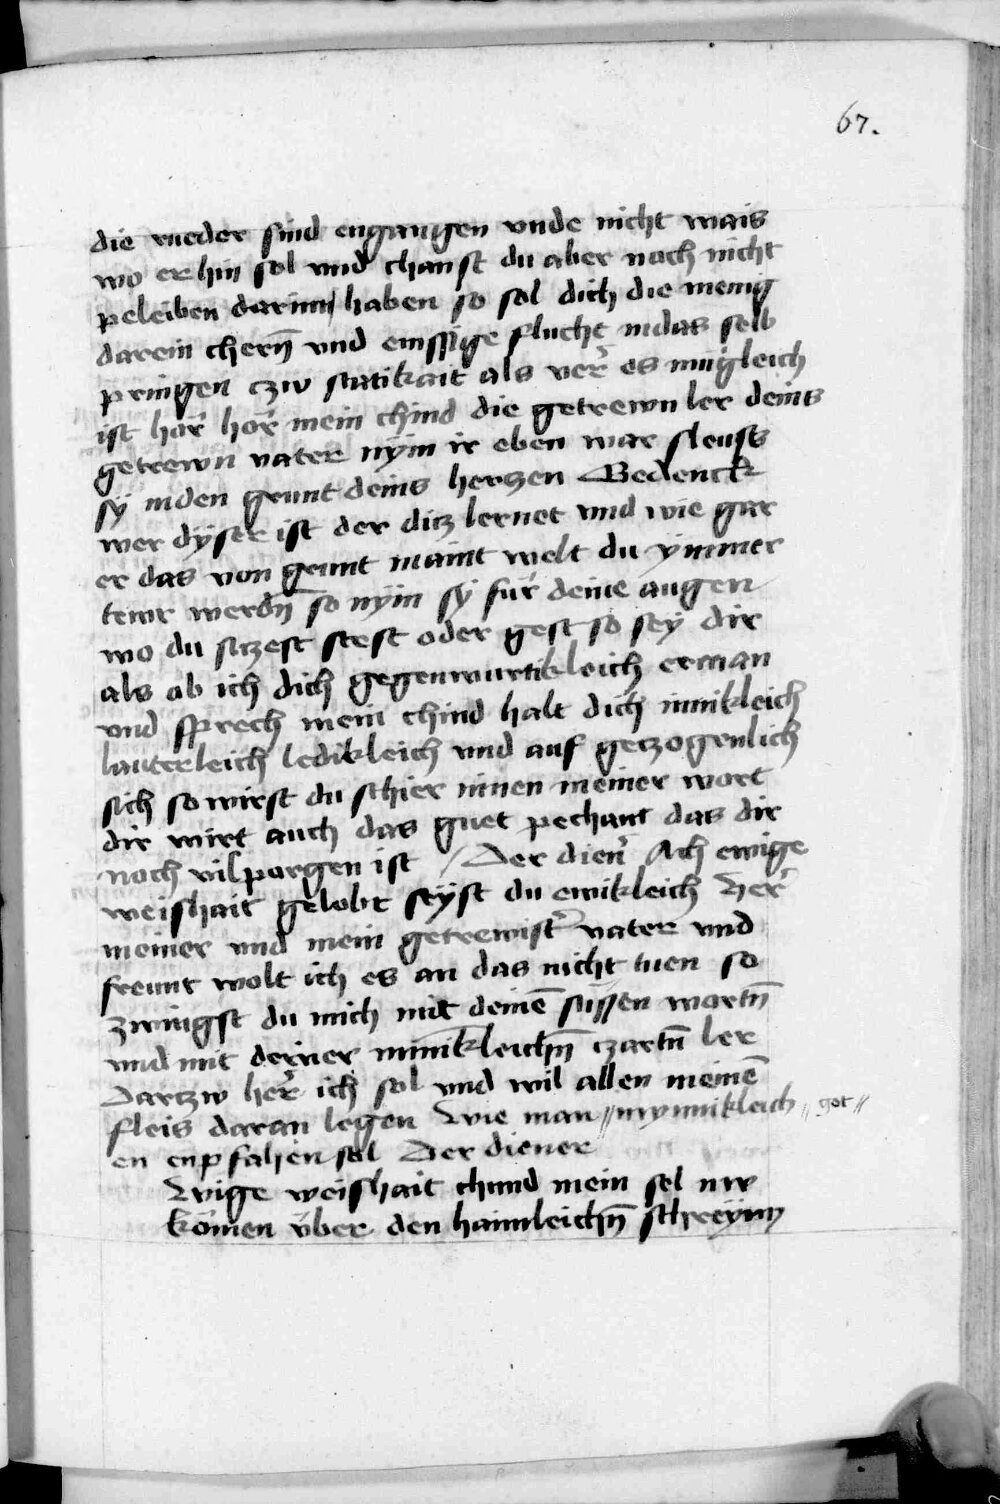 67.
die rueder sind engangen vnde nicht wais
wo er hin sol vnd chanst du aber noch nicht
peleiben darinn haben so sol dich die menig
darein chern̄ vnd emssige flucht indas selb
pringen czw statikait als ver̄ es mügleich
ist hör hör mein chind die getrewn ler deins
getrewn vater nÿm ir eben war sleusts
sÿ inden grunt deins hertzen Bedenck
wer dÿser ist der ditz lernet vnd wie gar
er das von grunt maint welt du ÿmmer
tewr werdn̄ so nÿm sÿ für deine augen
wo du sitzest stest oder gest so sey dir
als ob ich dich gegenwurtikleich erman
vnd sprech mein chind halt dich innikleich
lauterleich ledikleich vnd auf getzogenlich
sich so wirst du schier innen meiner wort
dir wirt auch das guet pechant das dir
noch vilporgen ist / Der dien̄ Ach ewige
weishait gelobt seÿst du ewikleich her̄
meiner vnd mein getrewist̄ vater vnd
freunt wolt ich es an das nicht tuen so
zwingst du mich mit deinē süssen wortn̄
vnd mit deiner minikleichn̄ czartn̄ ler
Dartzw her̄ ich sol vnd wil allen meinē
fleis daran legen Wie man // mynnikleich // got //
en enpfahen sol Der diener
Ewige weishait chund mein sel nw
kömen über den haimleichn̄ schreÿnn